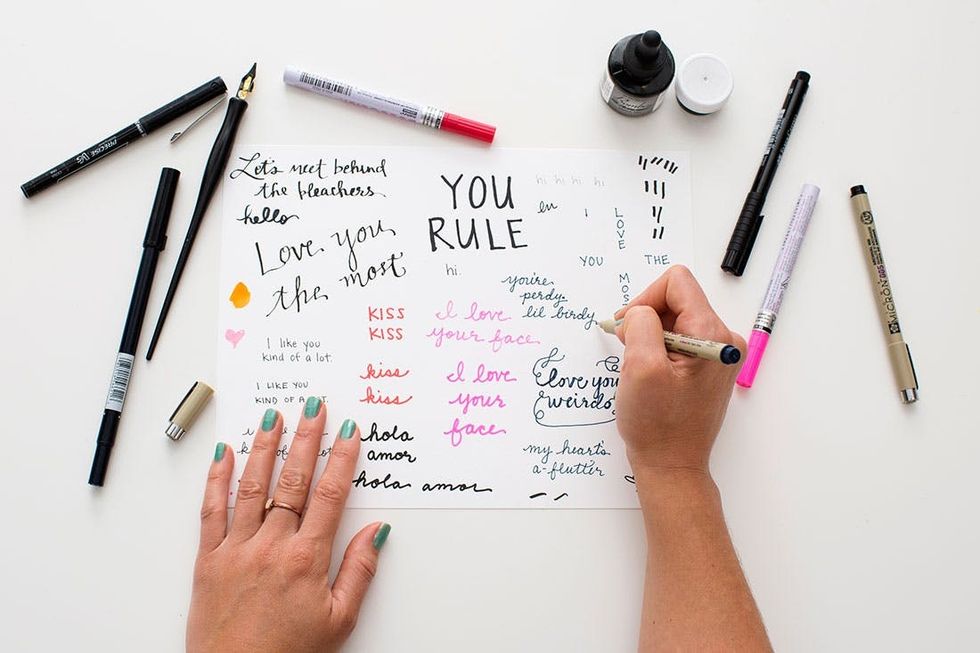 Let's meet behind
the bleachers
hello
Love you
the most
YOU
RULE
hi.
hi hi hi hi
en
I
LOVE
YOU
THE
MOS
you're
perdy
lil birdy
KISS
KISS
I love
your face
I like you
kind of a lot.
kiss
kiss
I love
your
face
love you
weirdo
I LIKE YOU
KIND OF A
hola
amor
my heart's
a-flutter
hola amor
PRECISE V5
MICRON